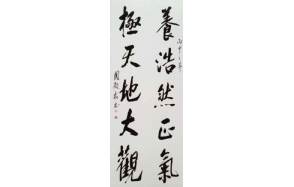 養浩然正氣
極天地大觀